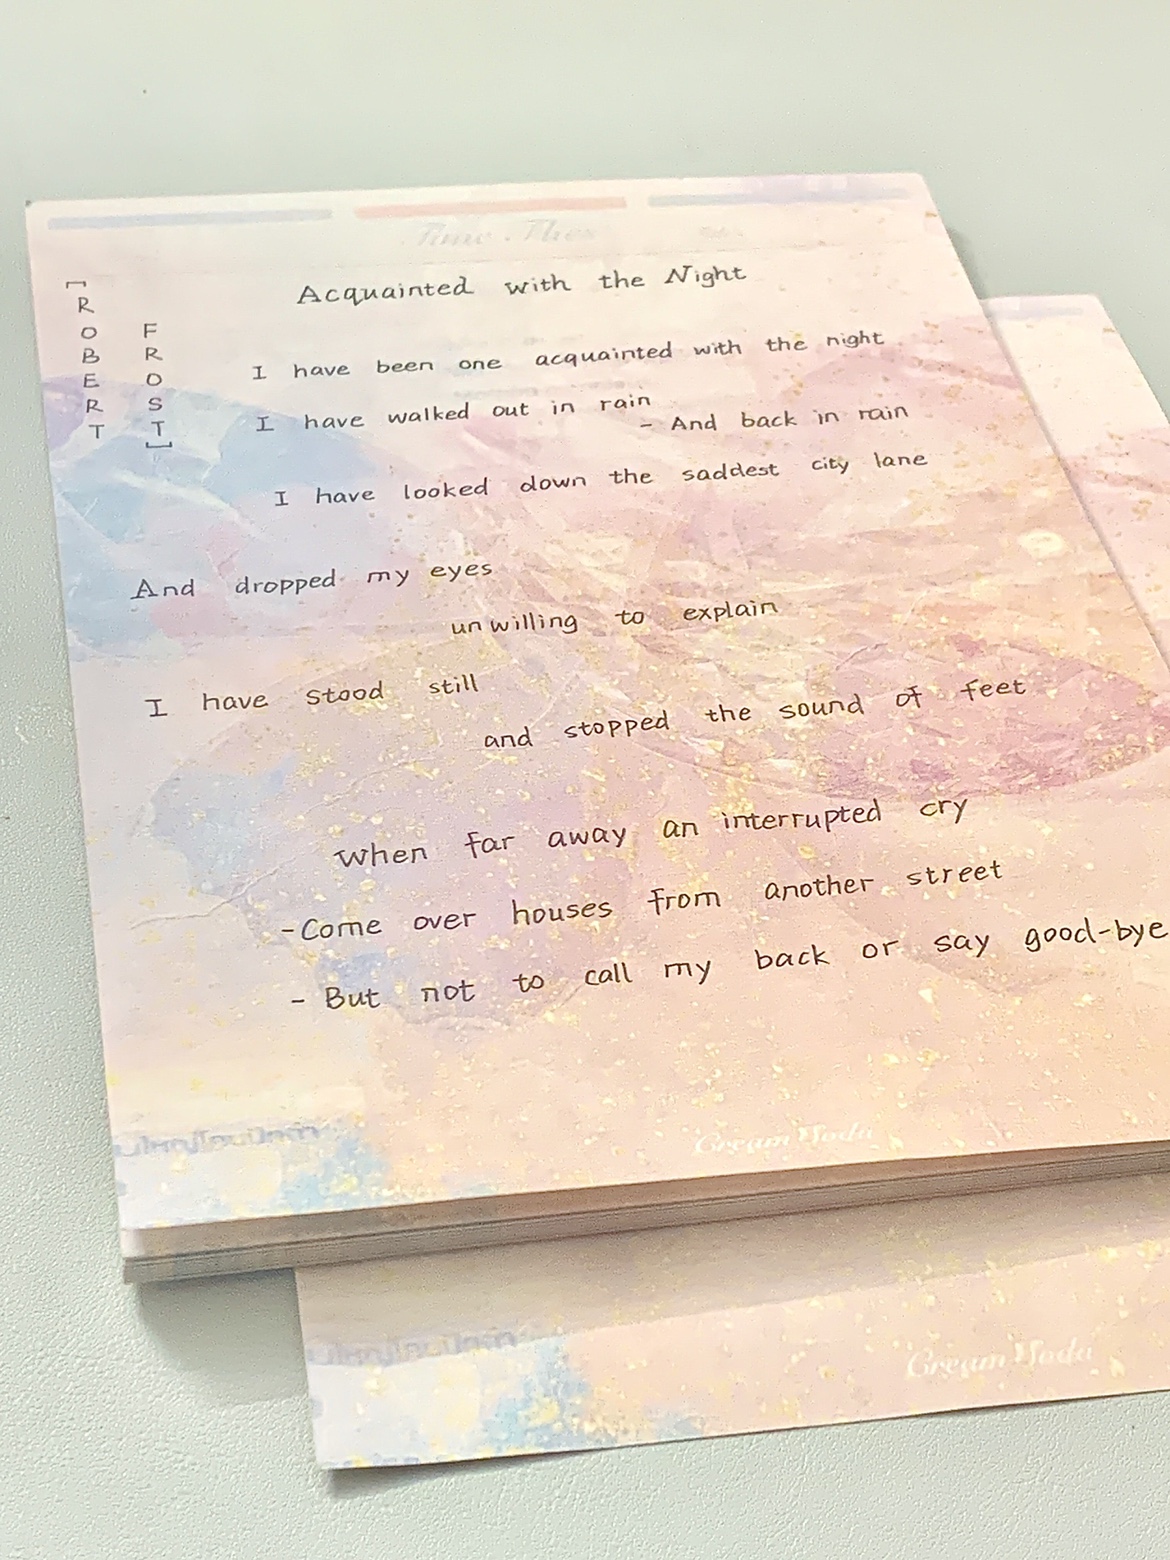 Acquainted with the Night
[ROBERT
FROST]
I have been one acquainted with the night
I have walked out in rain
- And back in rain
I have looked down the saddest city lane
And dropped my eyes
unwilling to explain
I have stood still
and stopped the sound of feet
When far away an interrupted cry
-Come over houses from another street
- But not to call my back or say good-bye
Cream Soda
Cream Soda